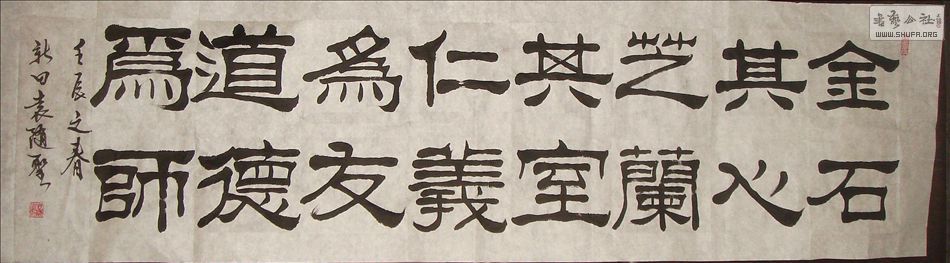 金石
其心
芝蘭
其室
仁義
為友
道德
為師
壬辰之春
新田袁隨聖
书艺公社
WWW.SHUFA.ORG